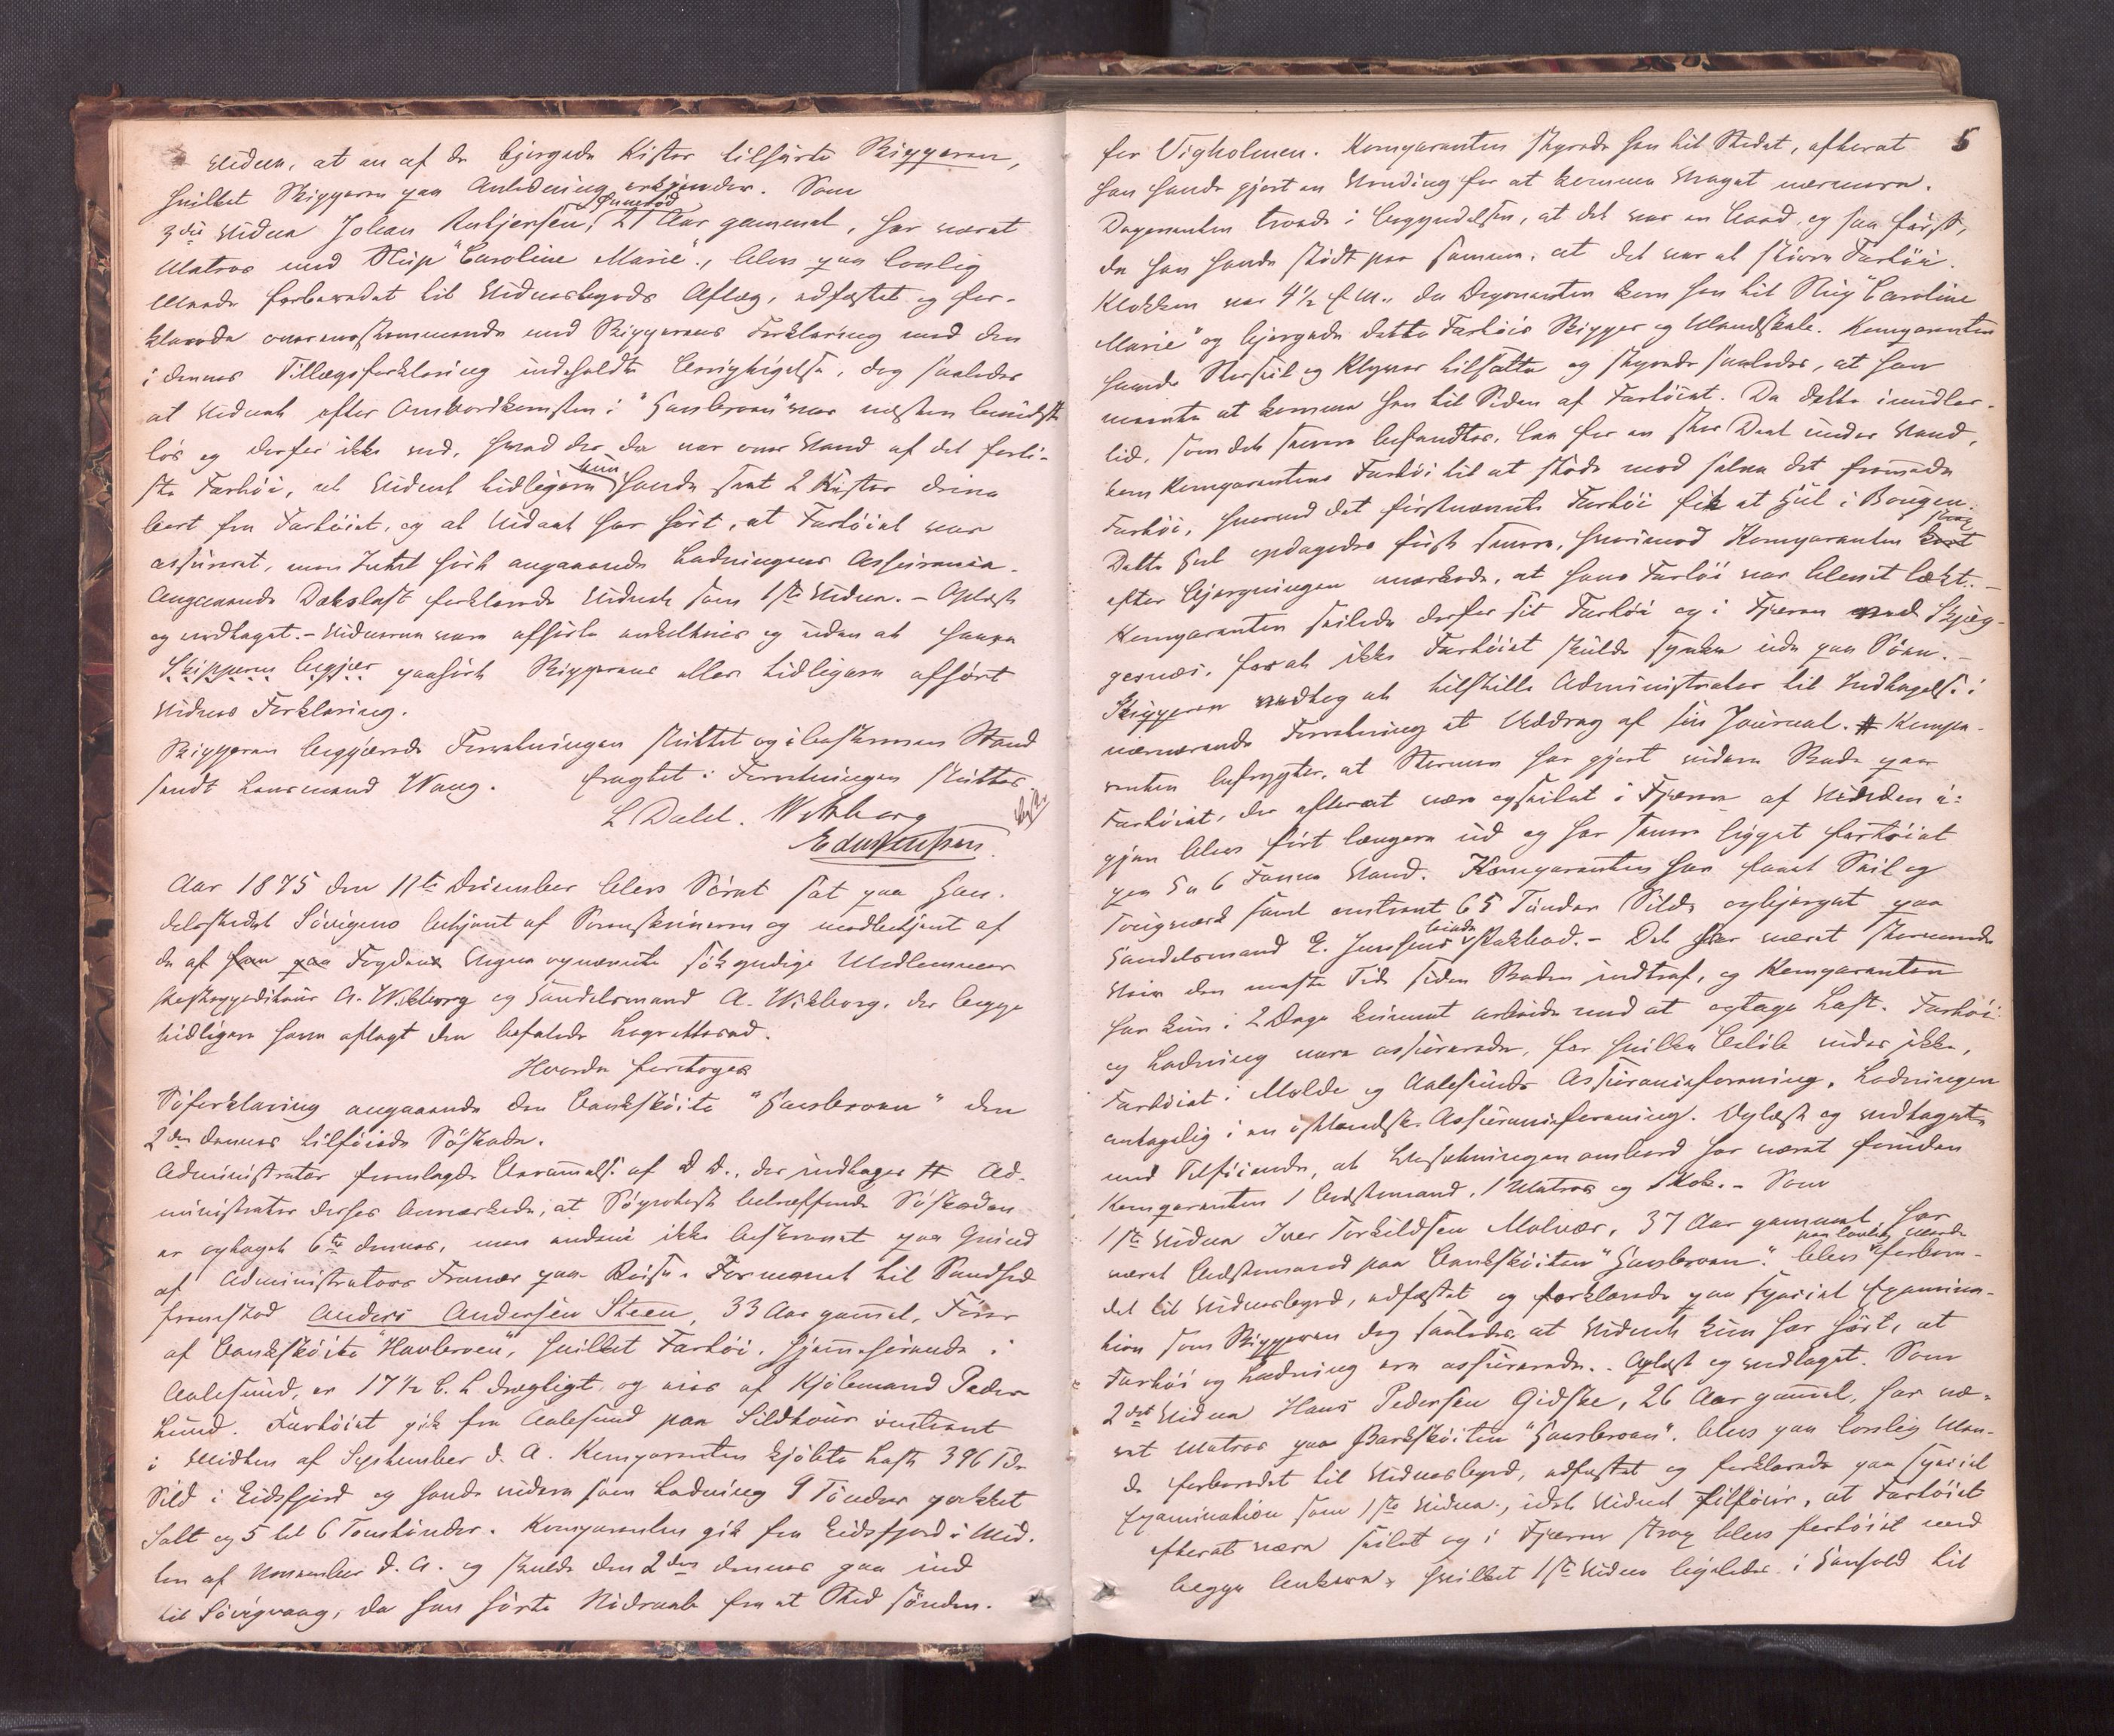 Vidne, at en af de bjergede Kister tilhørte Skipperen,
hvilket Skipperen paa Anledning erkjender. Som
3die Vidne Johan Anbjørsen, 21 Aar gammel, har været
Matros med Slup "Caroline Marie"., blev paa lovlig
Maade forberedet til Vidnesbyrds Aflæg, edfæstet og for-
klarede overensstemmende med Skipperens Forklaring med den
i dennes Tillægsforklaring indeholdte Berigtigelse, dog saaledes
at Vidnet efter Ombordkomsten i "Havbroen" var næsten bevidst-
løs og derfor ikke ved, hvad der da var over Vand af det forli-
ste Fartøi, at Vidnet tidligere kun havde seet 2 Kister drive
bort fra Fartøiet, og at Vidnet har hørt, at Fartøiet var
assureret, men Intet hørt angaaende Ladningens Assurance.
Angaaende Dækslast forklarede Vidnet som 1ste Vidne. - Oplæst
og vedtaget. - Vidnerne vare afhørte enkeltvis og uden at have
Skipperen begjær paahørt Skipperens eller tidligere afhørt
Vidnes Forklaring.
Skipperen begjærede Forretningen sluttet og i beskreven Stand
sendt Lensmand Waag. fragtet: Forretningen sluttet
L Dahl. Wikborg
Edv Hentzen.
Aar 1875 den 11te December blev Søret sat paa Han-
delsstedet Sövigens betjent af Sorenskriveren og medbetjent af
de af Fogden Evgen opnævnte søkyndige Medlemmer
A. Wikborg og Handelsmand A. Wikborg, der begge
tidligere have aflagt den befalede Lagretteseed.
Hvorda foretoges
Søforklaring angaaende den Bankskøite "Havbroen" den
2den dennes tilføiede Søskade.
Administrator fremlagde Berammelse af D.D., der indtages # Ad-
ministrator derhos bemærkede, at Søprotest betreffende Søskaden
er optaget 6te dennes, men endnu ikke beskrevet paa Grund
af Administrators Fravær paa Reise. Foremeent til Vandsted
fremstod Anders Andersen Steen, 33 Aar gammel, Fører
af Bankskøite "Havbroen", hvilket Fartøi, hjemmehørende i
Aalesund, er 17½ C. L. drægtigt og eies af Kjøbmand Peder
Lund. Fartøiet gik fra Aalesund paa Sildtour omtrent
i Midten af September d. A. Komparenten kjøbte Last 396 Tdr
Sild i Eidsfjord og havde videre som Ladning 9 Tönder pakket
Salt og 5 til 6 Tomtönder. Komparenten gik fra Eidsfjord i Mid-
ten af November d. A. og skulde den 2den dennes gaa ind
til Sövigvaag, da han hørte Nødraab fra et Sted sønden.
5
for Vigholmen. Komparenten styrede hen til Stedet, efterat
han havde gjort en Vending for at komme Vraget nærmere.
Deponenten troede i Begyndelsen, at det var en Baad og saa først,
da han havde stødt paa samme, at det var et større Fartøi.
Klokken var 4½ E.M., da Deponenten kom hen til Slup "Caroline
Marie" og bjergede dette Fartøis Skipper og Mandskab. Komparenten
havde Storseil og Klyver tilsatte og styrede saaledes, at han
mente at komme hen til Siden af Fartøiet. Da dette imidler-
tid, som det senere befandtes, laa for en stor Deel under Vand,
kom Komparentens Fartøi til at støde mod selve det fremmede
Fartøi, hvorved det førstnævnte Fartøi fik et Hul i Bougen.
Dette Hul opdagedes først senere, hvorimod Komparenten strax
efter bjergningen mærkede, at hans Fartøi var blevet lækt. -
Komparenten seilede derfor sit Fartøi op i Fjæren ved Skjæg-
genæs, for at ikke Fartøiet skulde synke ude paa Søen. -
Skipperen vedtog at tilstille Administrator til Indtagelse i
nærværende Forretning et Uddrag af sin Journal. # Kompa-
renten befrygter, at Stormen har gjort videre Skade paa
Fartøiet, der efterat være opseilet i Fjæren af Vinden i-
gjen blev ført længere ud og har senere ligget fortøiet
paa 5 a 6 Favne Vand. Komparenten har faaet Seil og
Tougværk samt omtrent 65 Tønder Sild opbjerget paa
Handelsmand E. Jenssens leiede Pakbod. - Det har været stormende
Veir den meste Tid siden Skaden indtraf, og Komparenten
har kun i 2 Dage kunnet arbeide med at optage Last. Fartøi
og Ladning vare assurerede, for hvilke Beløb vides ikke,
Fartøiet i Molde og Aalesunds Assuranceforening, Ladningen
antagelig i en Assuranceforening. Oplæst og vedtaget
med Tilføiende, at Besætningen ombord har været foruden
Komparenten 1 Bedstemand, 1 Matros og 1 Kok. - Som
1ste Vidne Iver Torkildsen Molvær, 37 Aar gammel, har
været Bedstemand paa Bankskøiten "Havbroen". blev paa lovlig Maade forbere-
det til Vidnesbyrd, edfæstet og forklarede paa special Examina-
tion som Skipperen dog saaledes at Vidnet kun har hørt, at
Fartøi og Ladning ere assurerede. - Oplæst og vedtaget. Som
2det Vidne Hans Pedersen Gidske, 26 Aar gammel, har væ-
ret Matros paa Bankskøiten "Havbroen". blev paa lovlig Maa-
de forberedet til Vidnesbyrd, edfæstet og forklarede paa special
Examination som 1ste Vidne., idet Vidnet tilføier, at Fartøiet
efterat være seilet op i Fjæren strax blev fortøiet med
begge Ankere, hvilket 1ste Vidne ligeledes i Henhold til